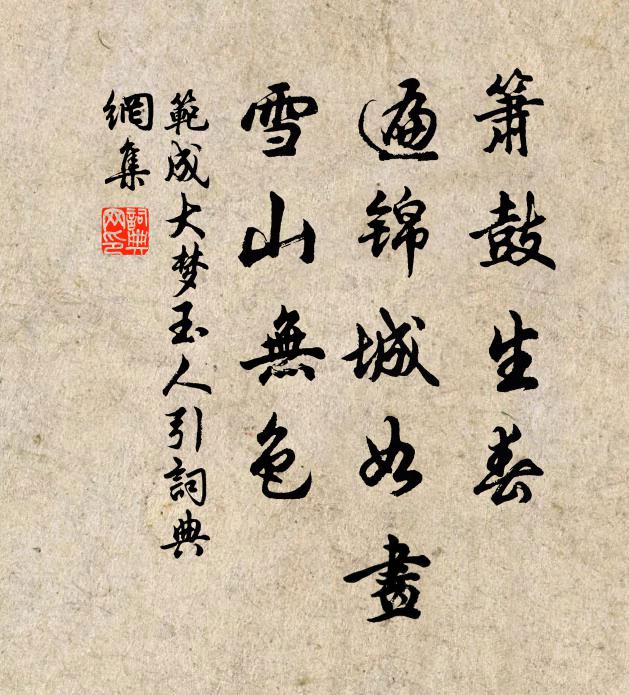 簫鼓生春
遍锦城如畫
雪山無色
範成大梦玉人引詞典
網集
詞典
网印